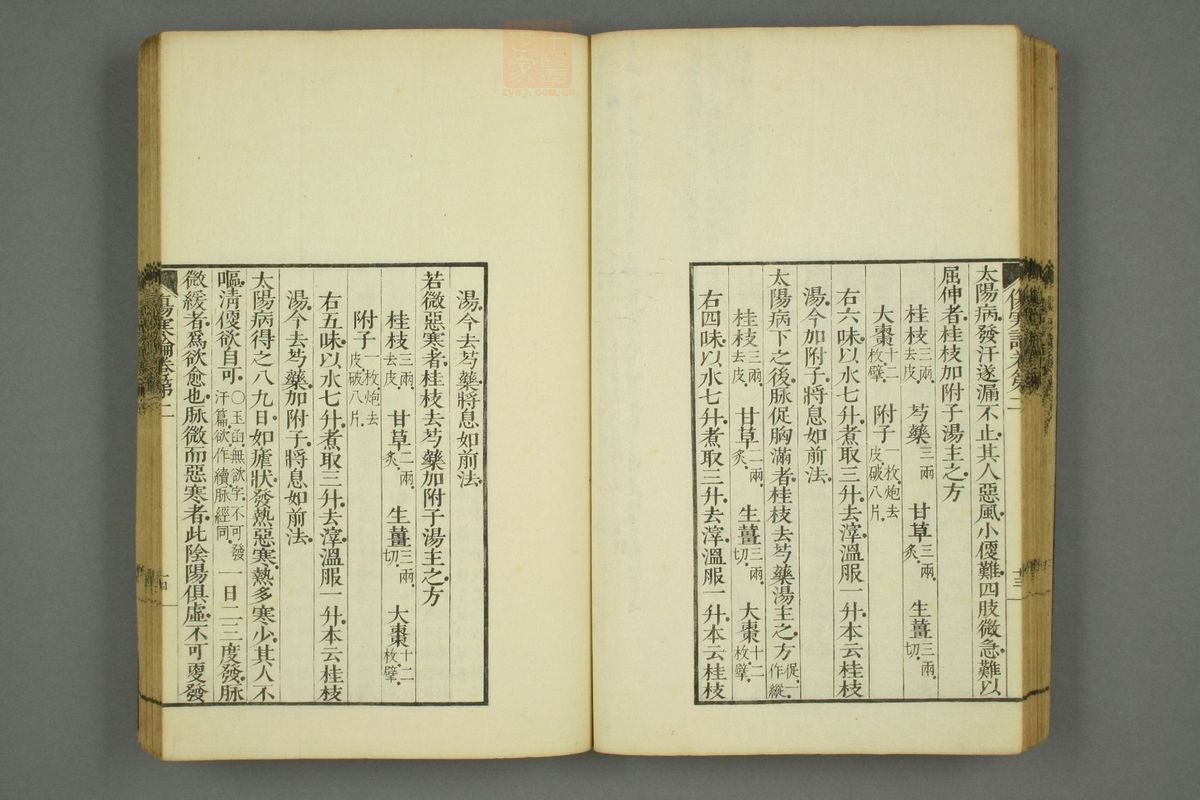 太陽病發汗遂漏不止其人惡風小便難四肢微急難以
屈伸者桂枝加附子湯主之方
桂枝三兩去皮 芍藥三兩 甘草三兩炙 生薑三兩切
大棗十二枚擘 附子一枚炮去皮破八片
右六味以水七升煮取三升去滓溫服一升本云桂枝
湯今加附子將息如前法
太陽病下之後脉促胸滿者桂枝去芍藥湯主之方促一作縱
桂枝三兩去皮 甘草二兩炙 生薑三兩切 大棗十二枚擘
右四味以水七升煮取三升去滓溫服一升本云桂枝
傷寒論卷第二
十三
湯今去芍藥將息如前法
若微惡寒者桂枝去芍藥加附子湯主之方
桂枝三兩去皮 甘草二兩炙 生薑三兩切 大棗十二枚擘
附子一枚炮去皮破八片
右五味以水七升煮取三升去滓溫服一升本云桂枝
湯今去芍藥加附子將息如前法
太陽病得之八九日如瘧狀發熱惡寒熱多寒少其人不
嘔清便欲自可〇玉函無欲字不可發汗篇欲作續脉經同一日二三度發脉
微緩者爲欲愈也脉微而惡寒者此陰陽俱虛不可更發
傷寒論卷第二
十四
zysj.com.cn